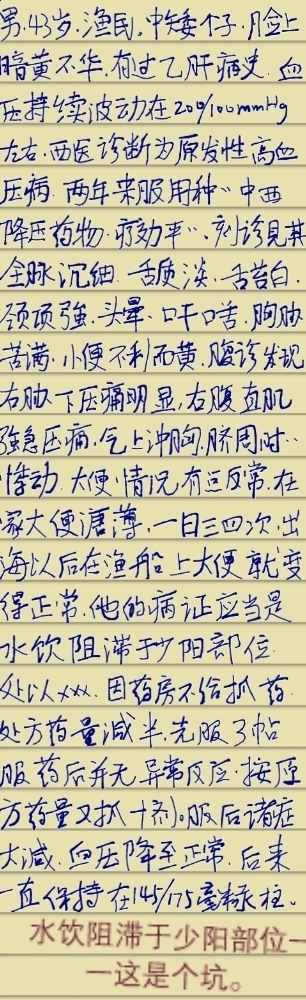 男.43岁.渔民.中矮个子.脸上
暗黄不华.有过乙肝病史.血
压持续波动在200/100mmHg
左右.西医诊断为原发性高血
压病.两年来服用种种中西
降压药物.疗効平平.刻诊见其
全脉沉细.舌质淡.舌苔白.
颈项強.头晕.口干口苦.胸胁
苦满.小便不利而黄.腹诊发现
右胁下压痛明显,右腹直肌
强急压痛.气上冲胸.脐周时时
悸动.大便情况有点反常.在
家大便溏薄.一日三四次.出
海以后在渔船上大便就变
得正常.他的病证应当是
水饮阻滞于少阳部位
处以xxx.因药房不给抓药
处方药量减半.先服3帖
服药后并无异常反应.按原
方药量又抓十剂.服后诸症
大减.血压降至正常.后来
一直保持在145/175毫米汞柱.
水饮阻滞于少阳部位—
—这是个坑。